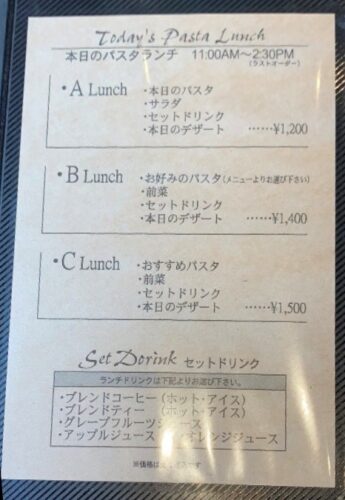 Today's Pasta Lunch
本日のパスタランチ 11:00AM～2:30PM
(ラストオーダー)
・A Lunch
・本日のパスタ
・サラダ
・セットドリンク
・本日のデザート ……¥1,200
・B Lunch
・お好みのパスタ(メニューよりお選び下さい)
・前菜
・セットドリンク
・本日のデザート ……¥1,400
・C Lunch
・おすすめパスタ
・前菜
・セットドリンク
・本日のデザート ……¥1,500
Set Dorink セットドリンク
ランチドリンクは下記よりお選び下さい。
・ブレンドコーヒー(ホット・アイス)
・ブレンドティー (ホット・アイス)
・グレープフルーツジュース
・アップルジュース ・オレンジジュース
※価格は です